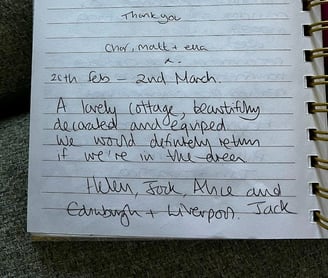 Thank you
Char, matt + ella
28th Feb – 2nd March.
A lovely cottage, beautifully
decorated and equiped.
We would definitely return
if we're in the area.
Helen, Jack, Alice and Jack
Edinburgh + Liverpool.